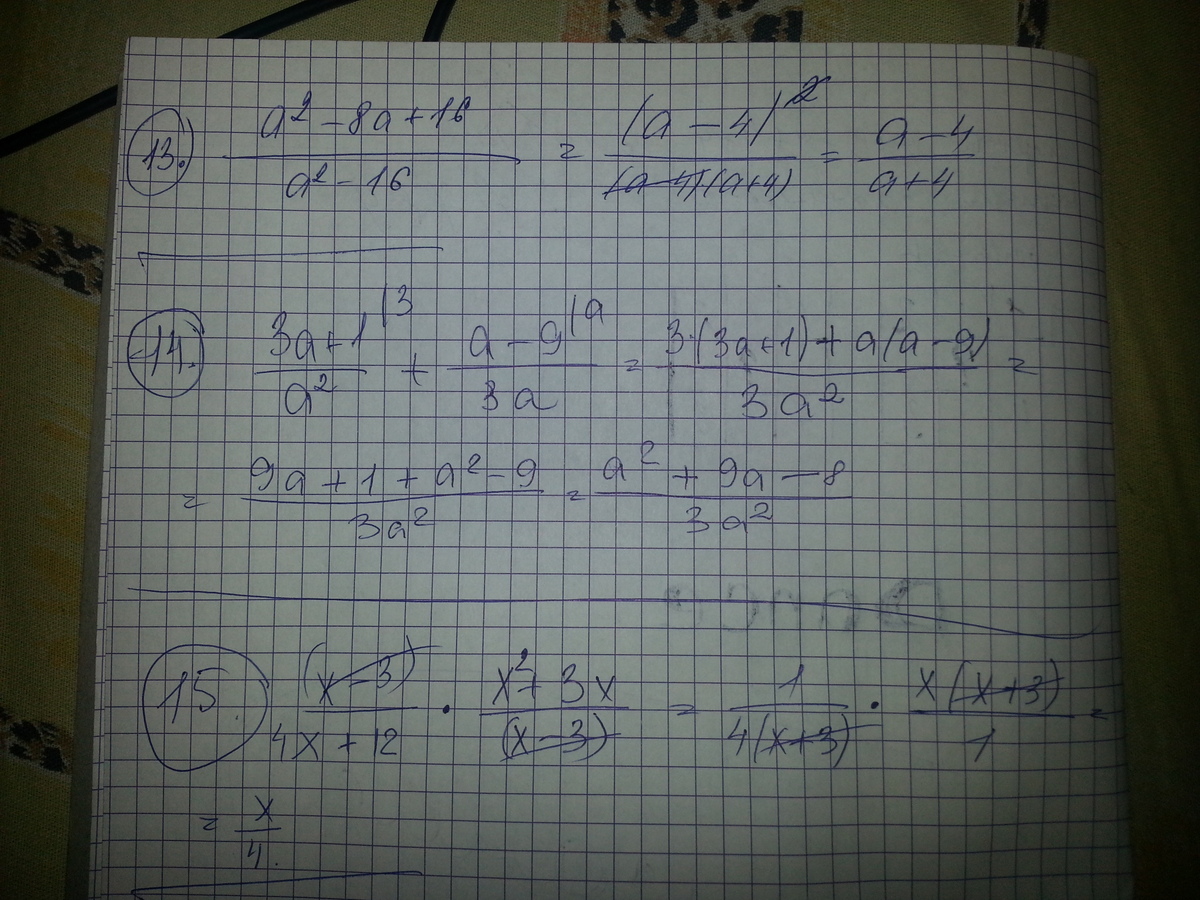 13. (a² - 8a + 16)/(a² - 16) = (a - 4)²/((a - 4)(a + 4)) = (a - 4)/(a + 4)
14. (3a + 1)/a² |3 + (a - 9)/3a |a = (3·(3a + 1) + a(a - 9))/3a² =
= (9a + 1 + a² - 9)/3a² = (a² + 9a - 8)/3a²
15. (x - 3)/(4x + 12) · (x² + 3x)/(x - 3) = 1/(4(x + 3)) · x(x + 3)/1 =
= x/4.